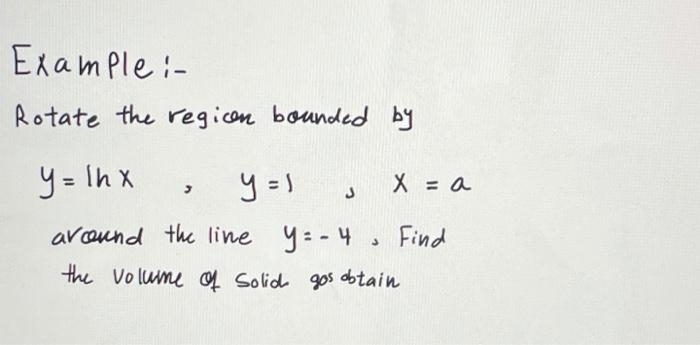 Example :-
Rotate the region bounded by
y = ln x , y = 1 , x = a
around the line y = - 4 , Find
the volume of solid gos obtain